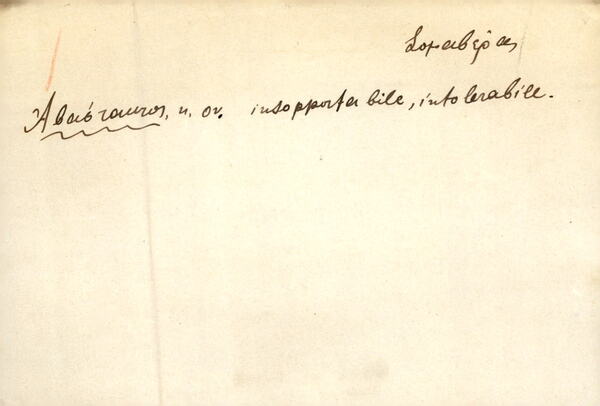 Σομαβέρας
Ἀβάσταυτος, η. ον. insopportabile, intolerabile.